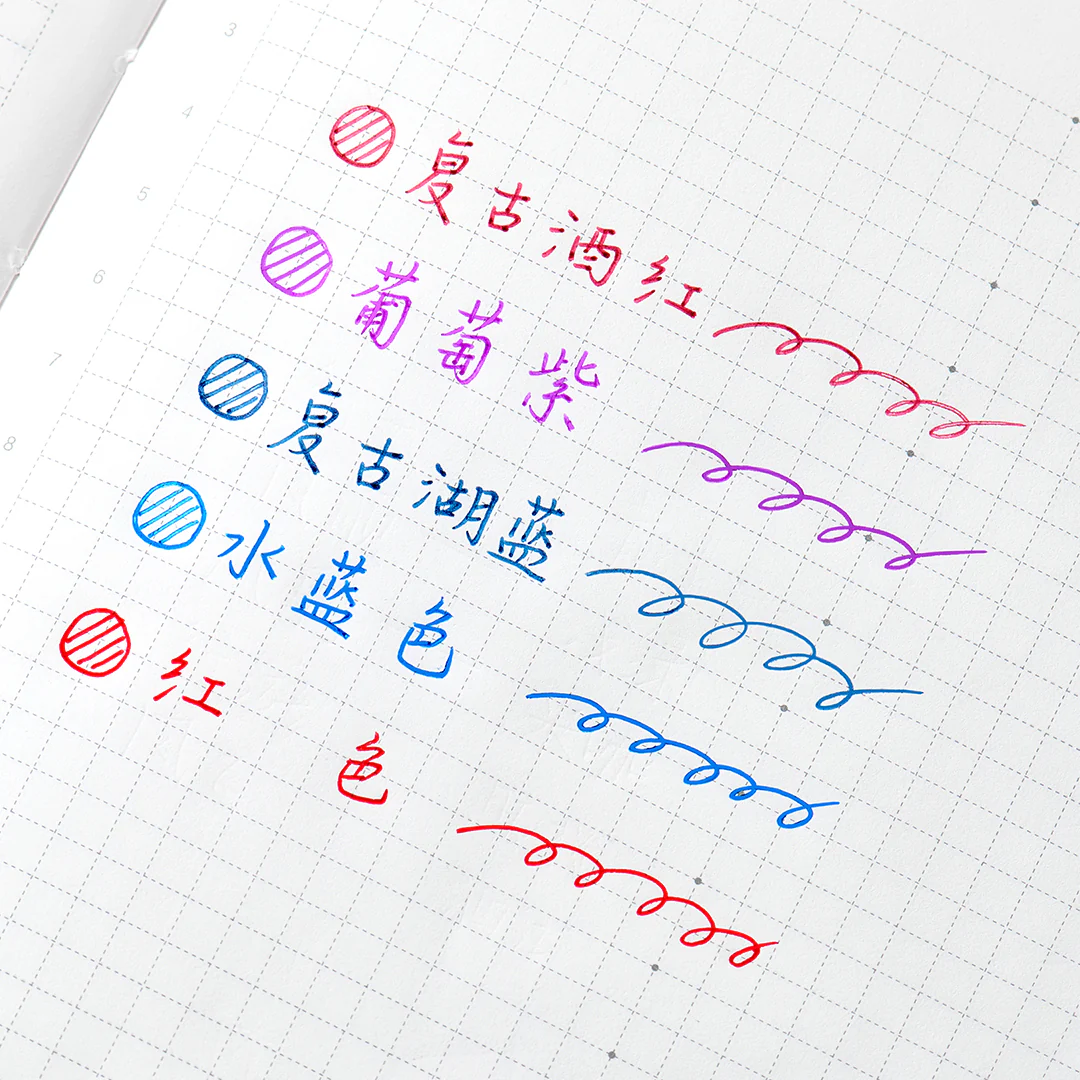 3
4
5
6
7
8
复古酒红
葡萄紫
复古湖蓝
水蓝色
红色